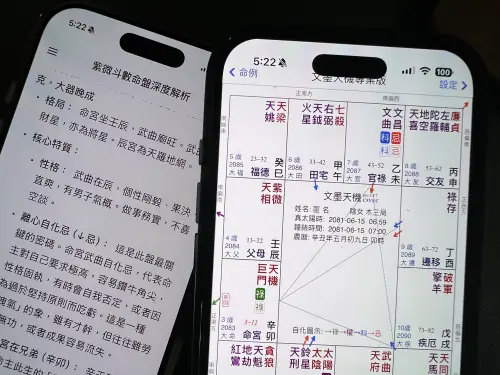 5:22
紫微斗數命盤深度解析
克，大器晚成
格局： 命宮坐壬辰，武曲廟旺。武
財星，亦為將星，辰宮為天羅地網。
• 核心特質：
• 性格： 武曲在辰，個性剛毅，果決
直爽，有男子氣概。做事務實，不喜
空談。
• 離心自化忌 (↓忌)： 這是此盤最
鍵的密碼。命宮武曲自化忌，代表命
主對自己要求極高，容易鑽牛角尖，
性格固執，有時會自我否定，或者因
為過於堅持原則而吃虧。這是一種
氣」的象，雖有才幹，但往往雖勞
無功，或者成果容易流失。
宮在兄弟 (辛卯)： 辛
5:22
100
命例
文墨天機專業版
設定
正南方
天天
姚梁
火天右七
星鉞弼殺
文文
曲昌
科忌
科
天地陀左廉
喜空羅輔貞
5 歲
2085
大福
23–32
福德
癸巳
6 歲
2086
大田
33–42
田宅
甲午
7 歲
2087
大官
43–52
官祿
乙未
8 歲
2088
大友
53–62
交友
丙申
天紫
相微
4 歲
2084
大父
父母
壬辰
文墨天機
姓名: 匿 名 陰女 木三局
真太陽時: 2081-06-15 06:59
鐘錶時間: 2081-06-15 07:00
農曆: 辛丑年五月初九日 卯時
自化圖示: →祿→權→科→忌
祿
存
9 歲
2089
大遷
63–72
遷移
丁酉
巨天
門機
祿
祿
3 歲
2083
大命
3–12
命宮
辛卯
破
軍
擎
羊
10 歲
2090
大疾
73–82
疾厄
戊戌
紅地天貪
鸞劫魁狼
天鈴太太
刑星陰陽
天武
府曲
天
同